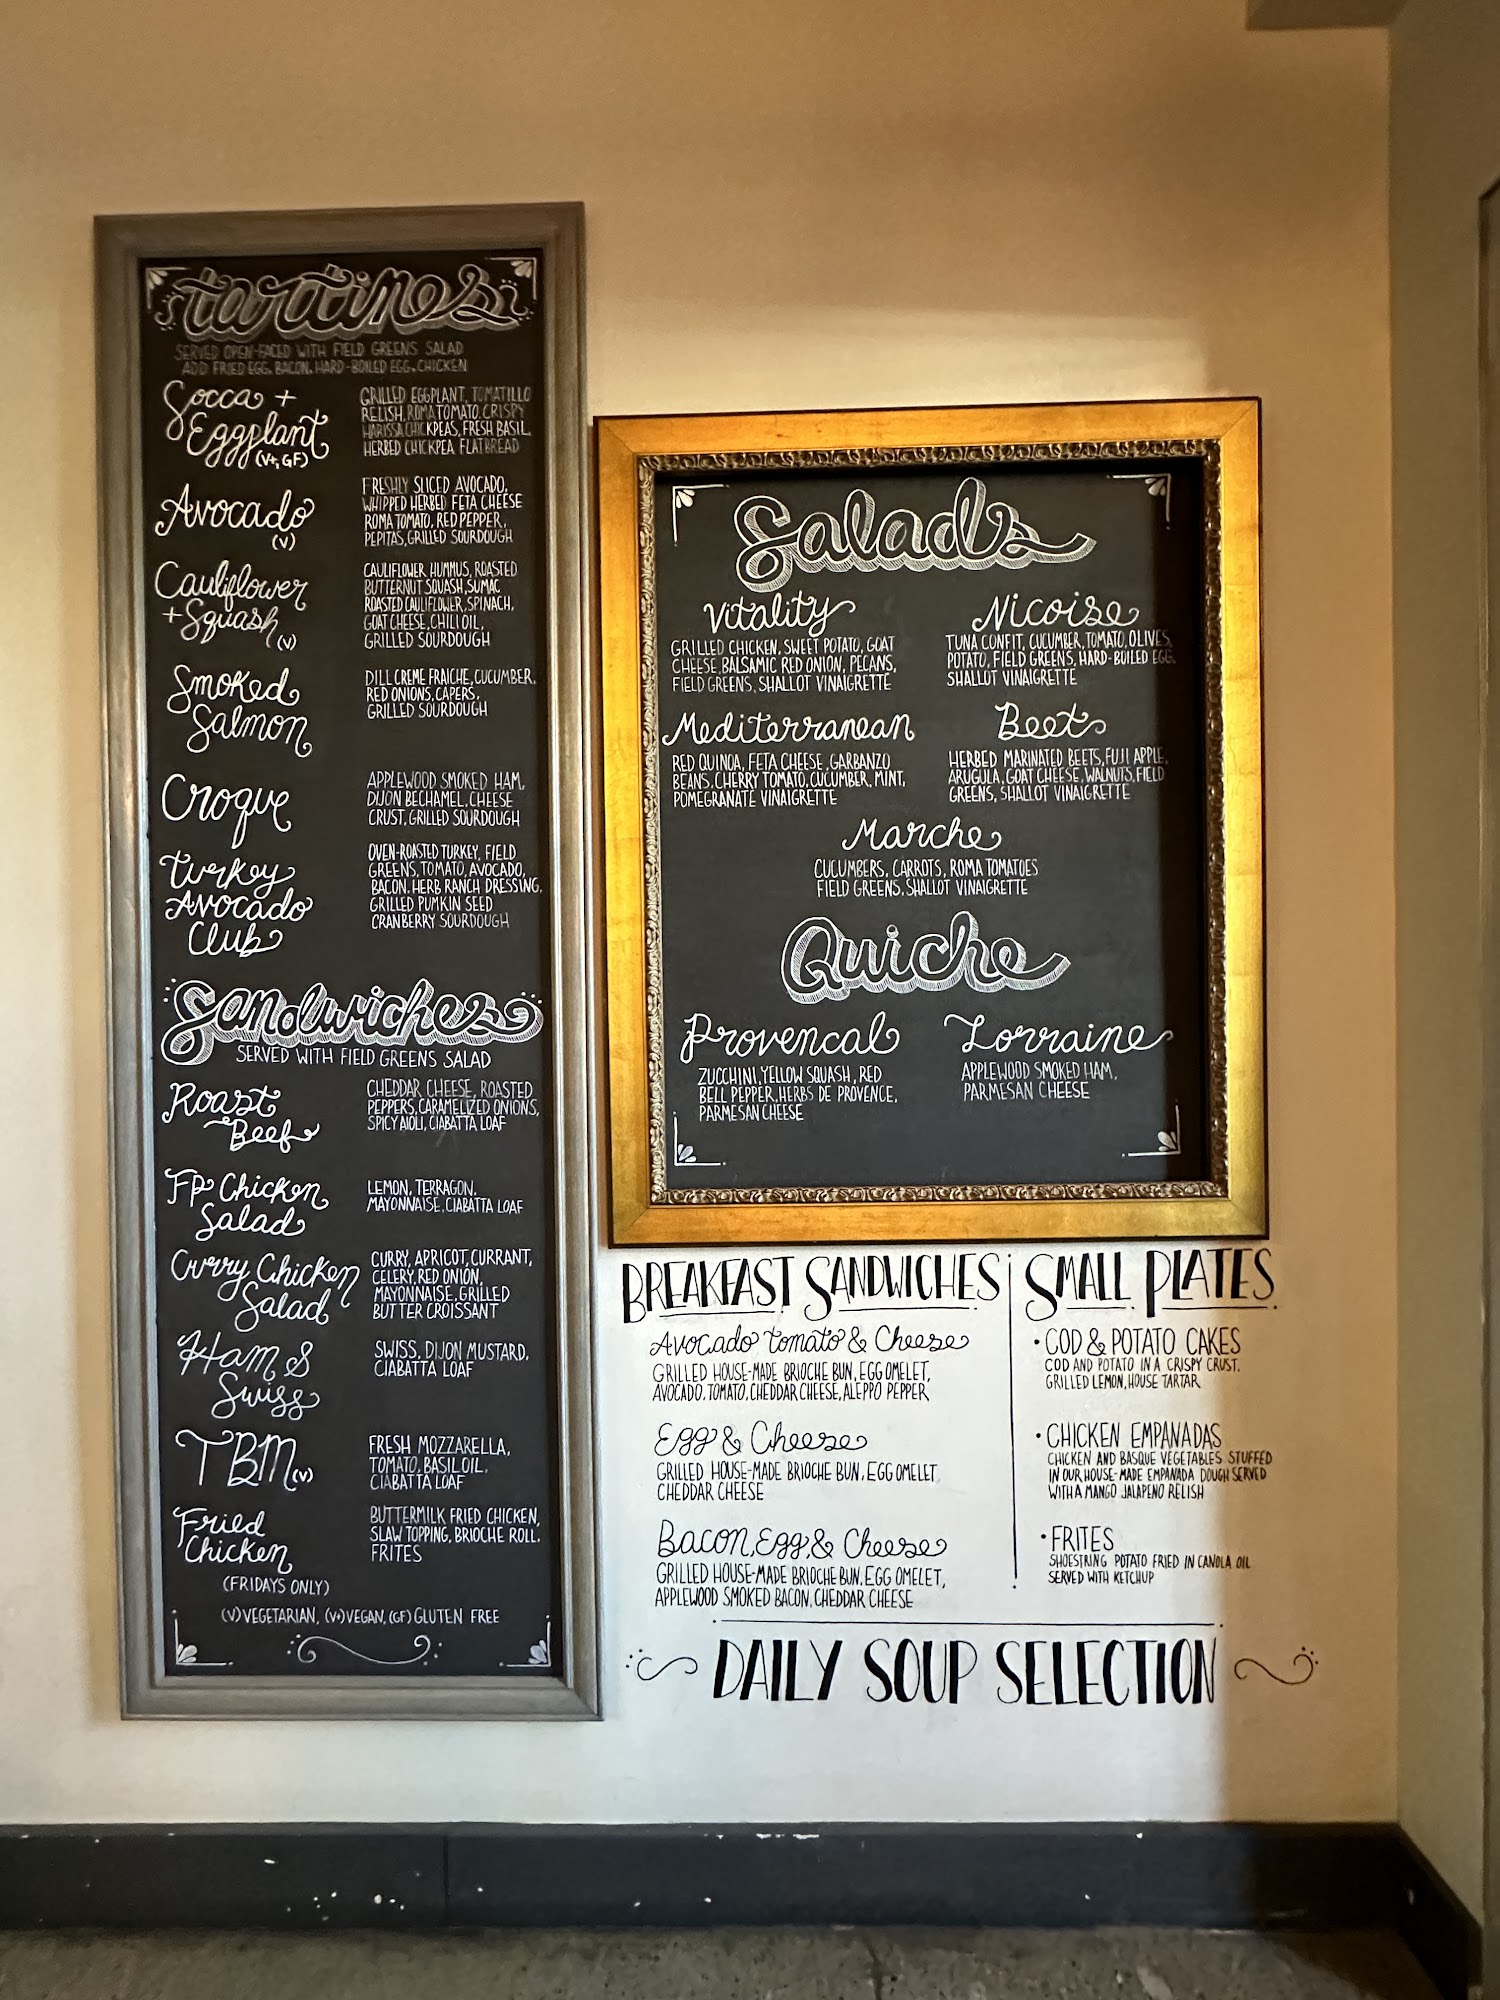 tartines
SERVED OPEN-FACED WITH FIELD GREENS SALAD
ADD FRIED EGG, BACON, HARD-BOILED EGG, CHICKEN
Socca +
Eggplant
(V+, GF)
GRILLED EGGPLANT, TOMATILLO
RELISH, ROMA TOMATO, CRISPY
HARISSA CHICKPEAS, FRESH BASIL,
HERBED CHICKPEA FLATBREAD
Avocado
(V)
FRESHLY SLICED AVOCADO,
WHIPPED HERBED FETA CHEESE
ROMA TOMATO, RED PEPPER,
PEPITAS, GRILLED SOURDOUGH
Cauliflower
+ Squash (V)
CAULIFLOWER HUMMUS, ROASTED
BUTTERNUT SQUASH, SUMAC
ROASTED CAULIFLOWER, SPINACH,
GOAT CHEESE, CHILI OIL,
GRILLED SOURDOUGH
Smoked
Salmon
DILL CREME FRAICHE, CUCUMBER,
RED ONIONS, CAPERS,
GRILLED SOURDOUGH
Croque
APPLEWOOD SMOKED HAM,
DIJON BECHAMEL, CHEESE
CRUST, GRILLED SOURDOUGH
Turkey
Avocado
Club
OVEN-ROASTED TURKEY, FIELD
GREENS, TOMATO, AVOCADO,
BACON, HERB RANCH DRESSING,
GRILLED PUMKIN SEED
CRANBERRY SOURDOUGH
Sandwiches
SERVED WITH FIELD GREENS SALAD
Roast
Beef
CHEDDAR CHEESE, ROASTED
PEPPERS, CARAMELIZED ONIONS,
SPICY AIOLI, CIABATTA LOAF
FP Chicken
Salad
LEMON, TERRAGON,
MAYONNAISE, CIABATTA LOAF
Curry Chicken
Salad
CURRY, APRICOT, CURRANT,
CELERY, RED ONION,
MAYONNAISE, GRILLED
BUTTER CROISSANT
Ham &
Swiss
SWISS, DIJON MUSTARD,
CIABATTA LOAF
TBM (V)
FRESH MOZZARELLA,
TOMATO, BASIL OIL,
CIABATTA LOAF
Fried
Chicken
(FRIDAYS ONLY)
BUTTERMILK FRIED CHICKEN,
SLAW TOPPING, BRIOCHE ROLL,
FRITES
(V) VEGETARIAN, (V+) VEGAN, (GF) GLUTEN FREE
Salads
Vitality
GRILLED CHICKEN, SWEET POTATO, GOAT
CHEESE, BALSAMIC RED ONION, PECANS,
FIELD GREENS, SHALLOT VINAIGRETTE
Nicoise
TUNA CONFIT, CUCUMBER, TOMATO, OLIVES,
POTATO, FIELD GREENS, HARD-BOILED EGG,
SHALLOT VINAIGRETTE
Mediterranean
RED QUINOA, FETA CHEESE, GARBANZO
BEANS, CHERRY TOMATO, CUCUMBER, MINT,
POMEGRANATE VINAIGRETTE
Beet
HERBED MARINATED BEETS, FUJI APPLE,
ARUGULA, GOAT CHEESE, WALNUTS, FIELD
GREENS, SHALLOT VINAIGRETTE
Marche
CUCUMBERS, CARROTS, ROMA TOMATOES
FIELD GREENS, SHALLOT VINAIGRETTE
Quiche
Provencal
ZUCCHINI, YELLOW SQUASH, RED
BELL PEPPER, HERBS DE PROVENCE,
PARMESAN CHEESE
Lorraine
APPLEWOOD SMOKED HAM,
PARMESAN CHEESE
BREAKFAST SANDWICHES
Avocado Tomato & Cheese
GRILLED HOUSE-MADE BRIOCHE BUN, EGG OMELET,
AVOCADO, TOMATO, CHEDDAR CHEESE, ALEPPO PEPPER
Egg & Cheese
GRILLED HOUSE-MADE BRIOCHE BUN, EGG OMELET
CHEDDAR CHEESE
Bacon, Egg, & Cheese
GRILLED HOUSE-MADE BRIOCHE BUN, EGG OMELET,
APPLEWOOD SMOKED BACON, CHEDDAR CHEESE
SMALL PLATES
• COD & POTATO CAKES
COD AND POTATO IN A CRISPY CRUST,
GRILLED LEMON, HOUSE TARTAR
• CHICKEN EMPANADAS
CHICKEN AND BASQUE VEGETABLES STUFFED
IN OUR HOUSE-MADE EMPANADA DOUGH SERVED
WITH A MANGO JALAPENO RELISH
• FRITES
SHOESTRING POTATO FRIED IN CANOLA OIL
SERVED WITH KETCHUP
DAILY SOUP SELECTION